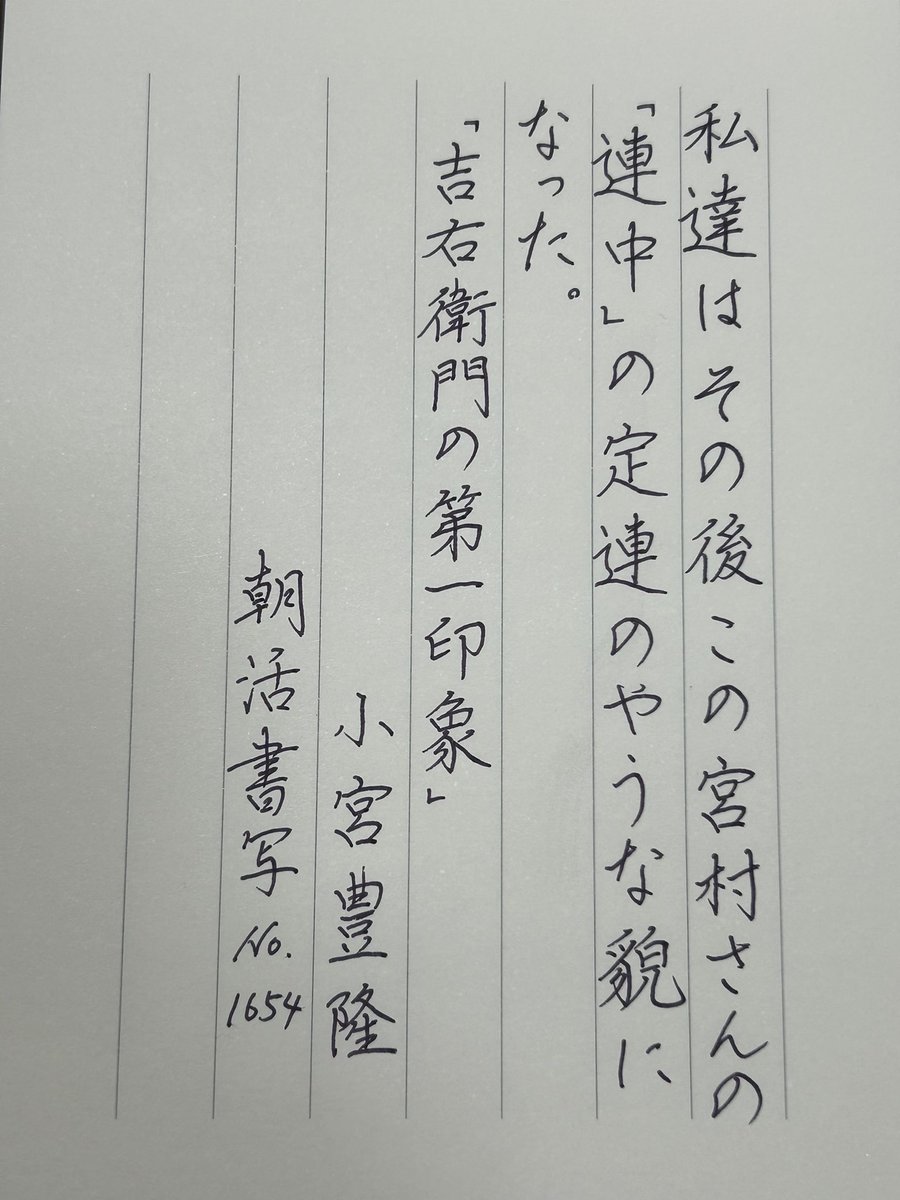 私達はその後この宮村さんの
「連中」の定連のやうな貌に
なった。
「吉右衛門の第一印象」
小宮豊隆
朝活書写 No. 1654